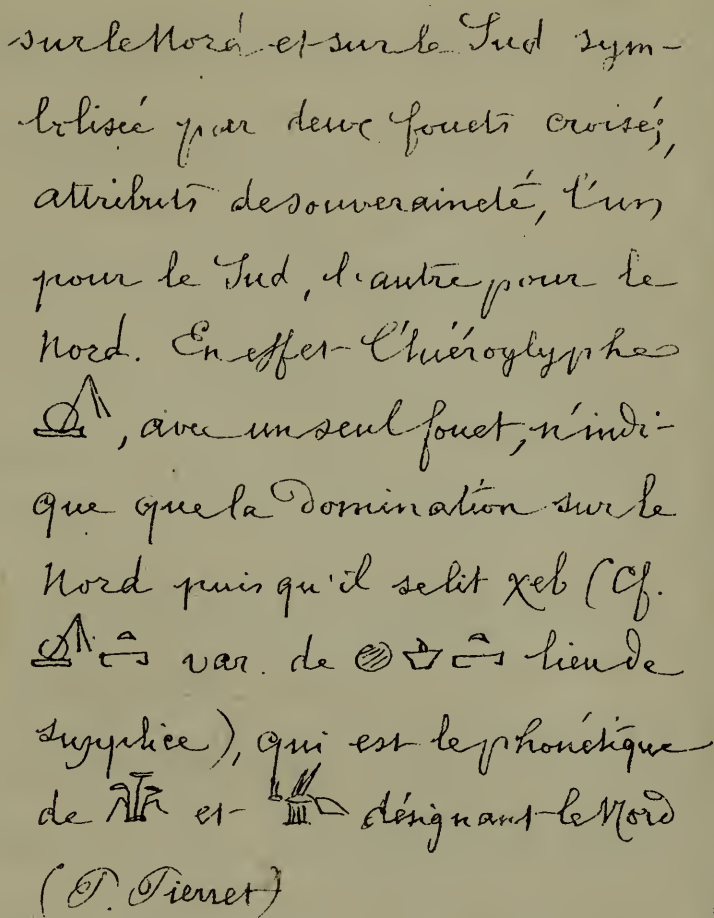 sur le Nord et sur le Sud sym-
bolisée par deux fouets croisés,
attributs de souveraineté, l'un
pour le Sud, l'autre pour le
Nord. En effet l'hiéroglyphe
, avec un seul fouet, n'indi-
que que la Domination sur le
Nord puis qu'il se lit χeb (Cf.
var. de lieu de
supplice), qui est le phonétique
de et désignant le Nord
(P. Pierret)